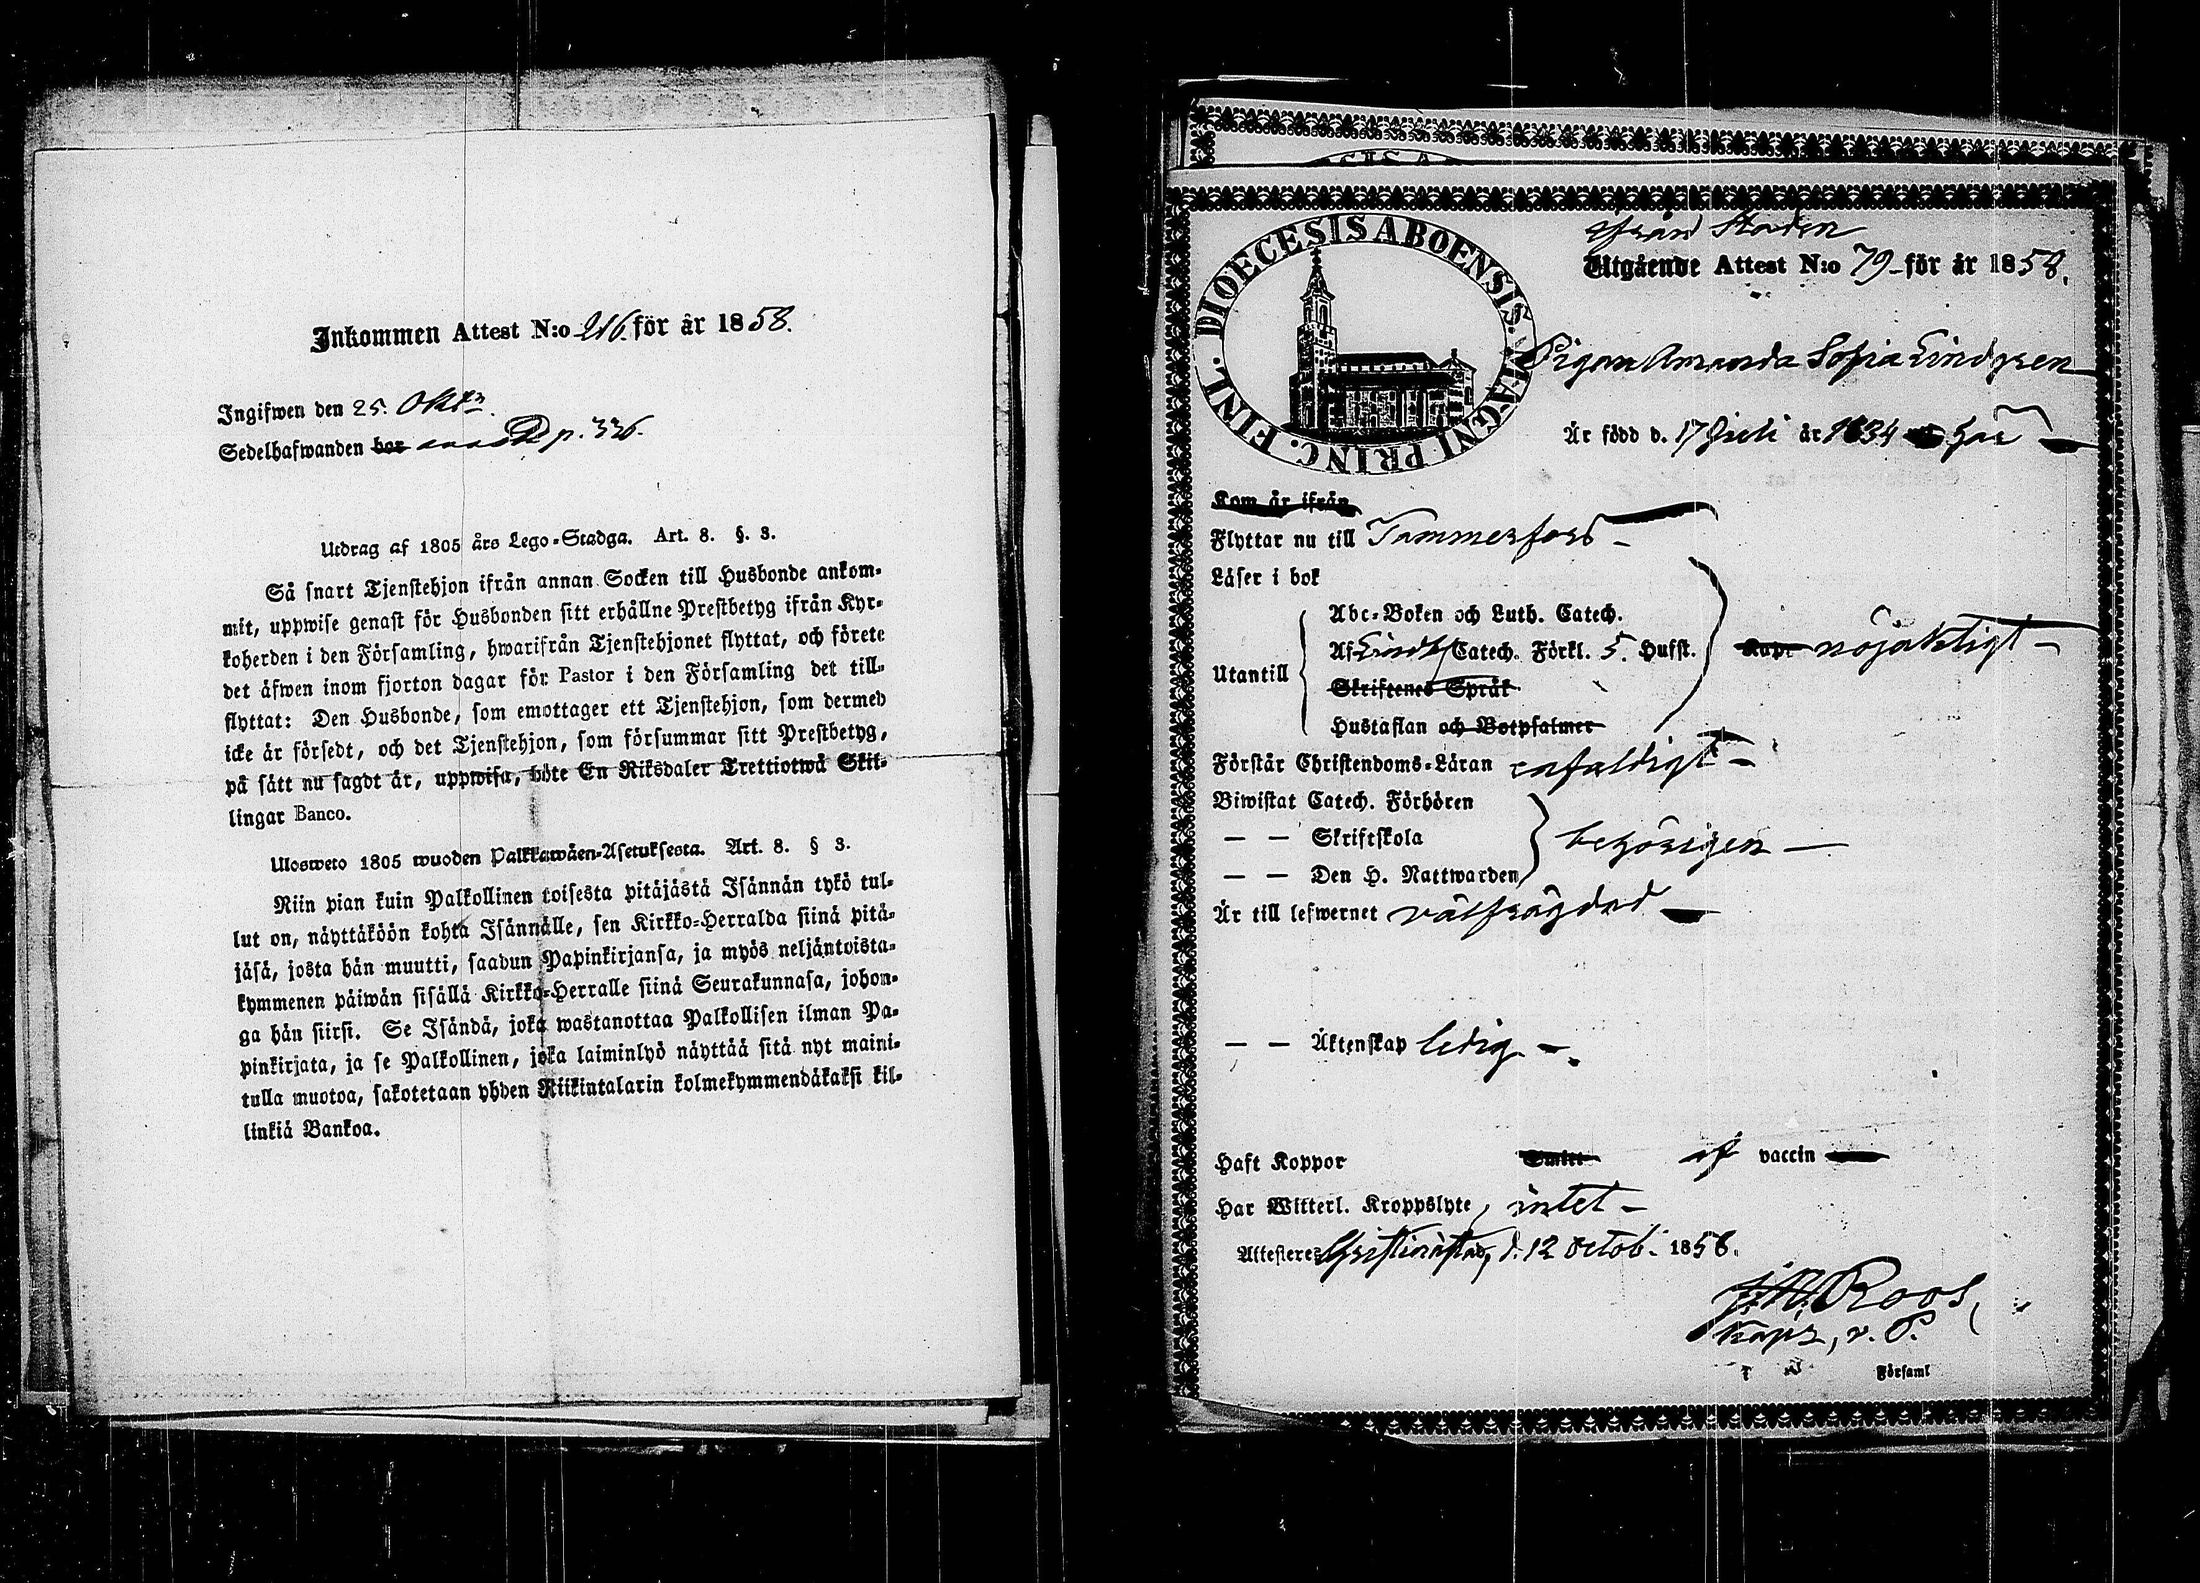 Inkommen Attest N:o 216. för år 1858.
Ingifwen den 25. Oktr.
Sedelhafwanden bor p. 336.
Utdrag af 1805 års Lego-Stadga. Art. 8. §. 3.
Så snart Tjenstehjon ifrån annan Socken till Husbonde ankom-
mit, uppwise genast för Husbonden sitt erhållne Prestbetyg ifrån Kyr-
koherden i den Församling, hwarifrån Tjenstehjonet flyttat, och förete
det äfwen inom fjorton dagar för Pastor i den Församling det till-
flyttat: Den Husbonde, som emottager ett Tjenstehjon, som dermed
icke är försedt, och det Tjenstehjon, som försummar sitt Prestbetyg,
på sätt nu sagdt är, uppwisa, böte En Riksdaler Trettiotwå Skil-
lingar Banco.
Ulosweto 1805 wuoden Palkkawäen-Asetuksesta. Art. 8. § 3.
Niin pian kuin Palkollinen toisesta pitäjästä Isännän tykö tul-
lut on, näyttäköön kohta Isännälle, sen Kirkko-Herralda siinä pitä-
jäsä, josta hän muutti, saadun Papinkirjansa, ja myös neljäntoista-
kymmenen päiwän sisällä Kirkko-Herralle siinä Seurakunnasa, johon-
ga hän siirsi. Se Isändä, joka wastanottaa Palkollisen ilman Pa-
pinkirjata, ja se Palkollinen, joka laiminlyö näyttää sitä nyt maini-
tulla muotoa, sakotetaan yhden Riikintalarin kolmekymmendäkaksi kil-
linkiä Bankoa.
DIOECESIS ABOENSIS. MAGNI PRINC. FINL.
ifrån Staden
Utgående Attest N:o 79 för år 1858.
Pigan Amanda Sofia Lindgren
Är född d. 17 Juli år 1834 här
Kom år ifrån
Flyttar nu till Tammerfors
Läser i bok
Utantill
Abc-Boken och Luth. Catech.
Af Catech. Förkl. 5. Hufst.
Skriftenes Språk
Hustaflan och Botpsalmer
nöjaktigt
Förstår Christendoms-Läran enfaldigt
Biwistat Catech. Förhören
— — Skriftskola
— — Den H. Nattwarden
behörigen
Är till lefwernet välfrägdad
— — Äktenskap ledig
Haft Koppor af vaccin
Har Witterl. Kroppslyte, intet
Attesteres Christinestad, d. 12 Octob. 1858.
Roos,
Kapn, v. P.
Församl